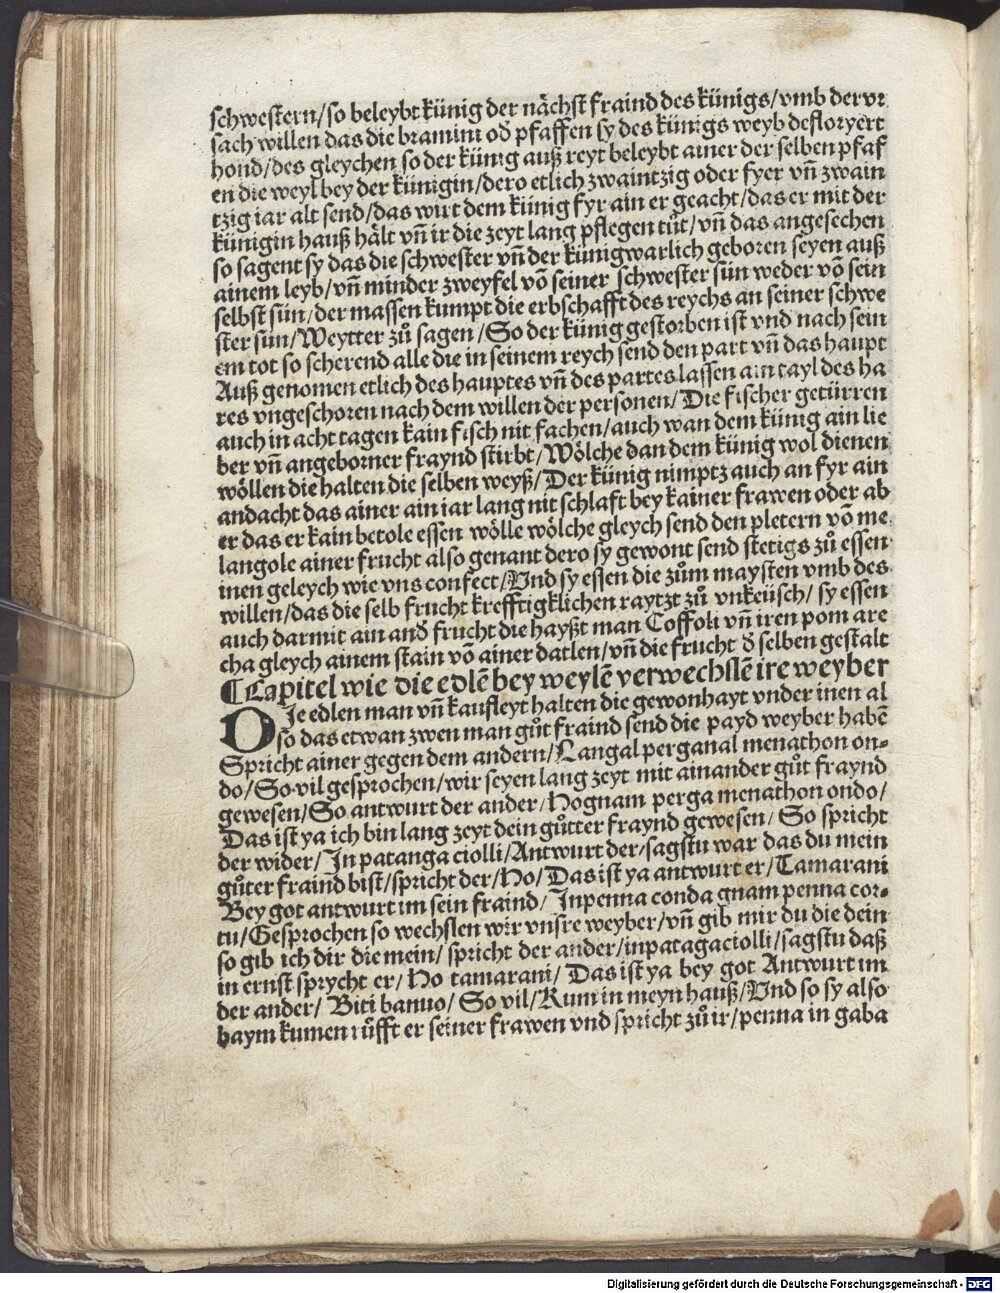 schwestern/so beleybt künig der nächst fraind des künigs/vmb der vr
sach willen das die bramini oď pfaffen sy des künigs weyb defloryert
hond/des gleychen so der künig auß reyt beleybt ainer der selben pfaf
en die weyl bey der künigin/dero etlich zwaintzig oder fyer vñ zwain
tzig iar alt send/das wirt dem künig fyr ain er geacht/das er mit der
künigin hauß hält vñ ir die zeyt lang pflegen tůt/vñ das angesechen
so sagent sy das die schwester vñ der künig warlich geboren seyen auß
ainem leyb/vñ minder zweyfel võ seiner schwester sün weder võ sein
selbst sün/der massen kumpt die erbschafft des reychs an seiner schwe
ster sün/Weytter zů sagen/So der künig gestorben ist vnd nach sein
em tot so scherend alle die in seinem reych send den part vñ das haupt
Auß genomen etlich des hauptes vñ des partes lassen ain tayl des ha
res vngeschoren nach dem willen der personen/Die fischer getürren
auch in acht tagen kain fisch nit fachen/auch wan dem künig ain lie
ber vñ angeborner fraynd stirbt/Wölche dan dem künig wol dienen
wöllen die halten die selben weyß/Der künig nimptz auch an fyr ain
andacht das ainer ain iar lang nit schlaft bey kainer frawen oder ab
er das er kain betole essen wölle wölche gleych send den pletern võ me
langole ainer frucht also genant dero sy gewont send stetigs zů essen
inen geleych wie vns confect/Vnd sy essen die zům maysten vmb des
willen/das die selb frucht krefftigklichen raytzt zů vnkeüsch/sy essen
auch darmit ain anď frucht die hayßt man Coffoli vñ iren pom are
cha gleych ainem stain võ ainer datlen/vñ die frucht ď selben gestalt
⸿Capitel wie die edlẽ bey weylẽ verwechslẽ ire weyber
DJe edlen man vñ kaufleyt halten die gewonhayt vnder inen al
so das etwan zwen man gůt fraind send die payd weyber habẽ
Spricht ainer gegen dem andern/Langal perganal menathon on⸗
do/So vil gesprochen/wir seyen lang zeyt mit ainander gůt fraynd
gewesen/So antwurt der ander/Hognam perga menathon ondo/
Das ist ya ich bin lang zeyt dein gůtter fraynd gewesen/So spricht
der wider/Jn patanga ciolli/Antwurt der/sagstu war das du mein
gůter fraind bist/spricht der/Ho/Das ist ya antwurt er/Tamarani
Bey got antwurt im sein fraind/Jnpenna conda gnam penna cor⸗
tu/Gesprochen so wechslen wir vnsre weyber/vñ gib mir du die dein
so gib ich dir die mein/spricht der ander/inpatagaciolli/sagstu daß
in ernst sprycht er/Ho tamarani/Das ist ya bey got Antwurt im
der ander/Biti banuo/So vil/Kum in meyn hauß/Vnd so sy also
haym kumen růfft er seiner frawen vnd spricht zů ir/penna in gaba
Digitalisierung gefördert durch die Deutsche Forschungsgemeinschaft - DFG